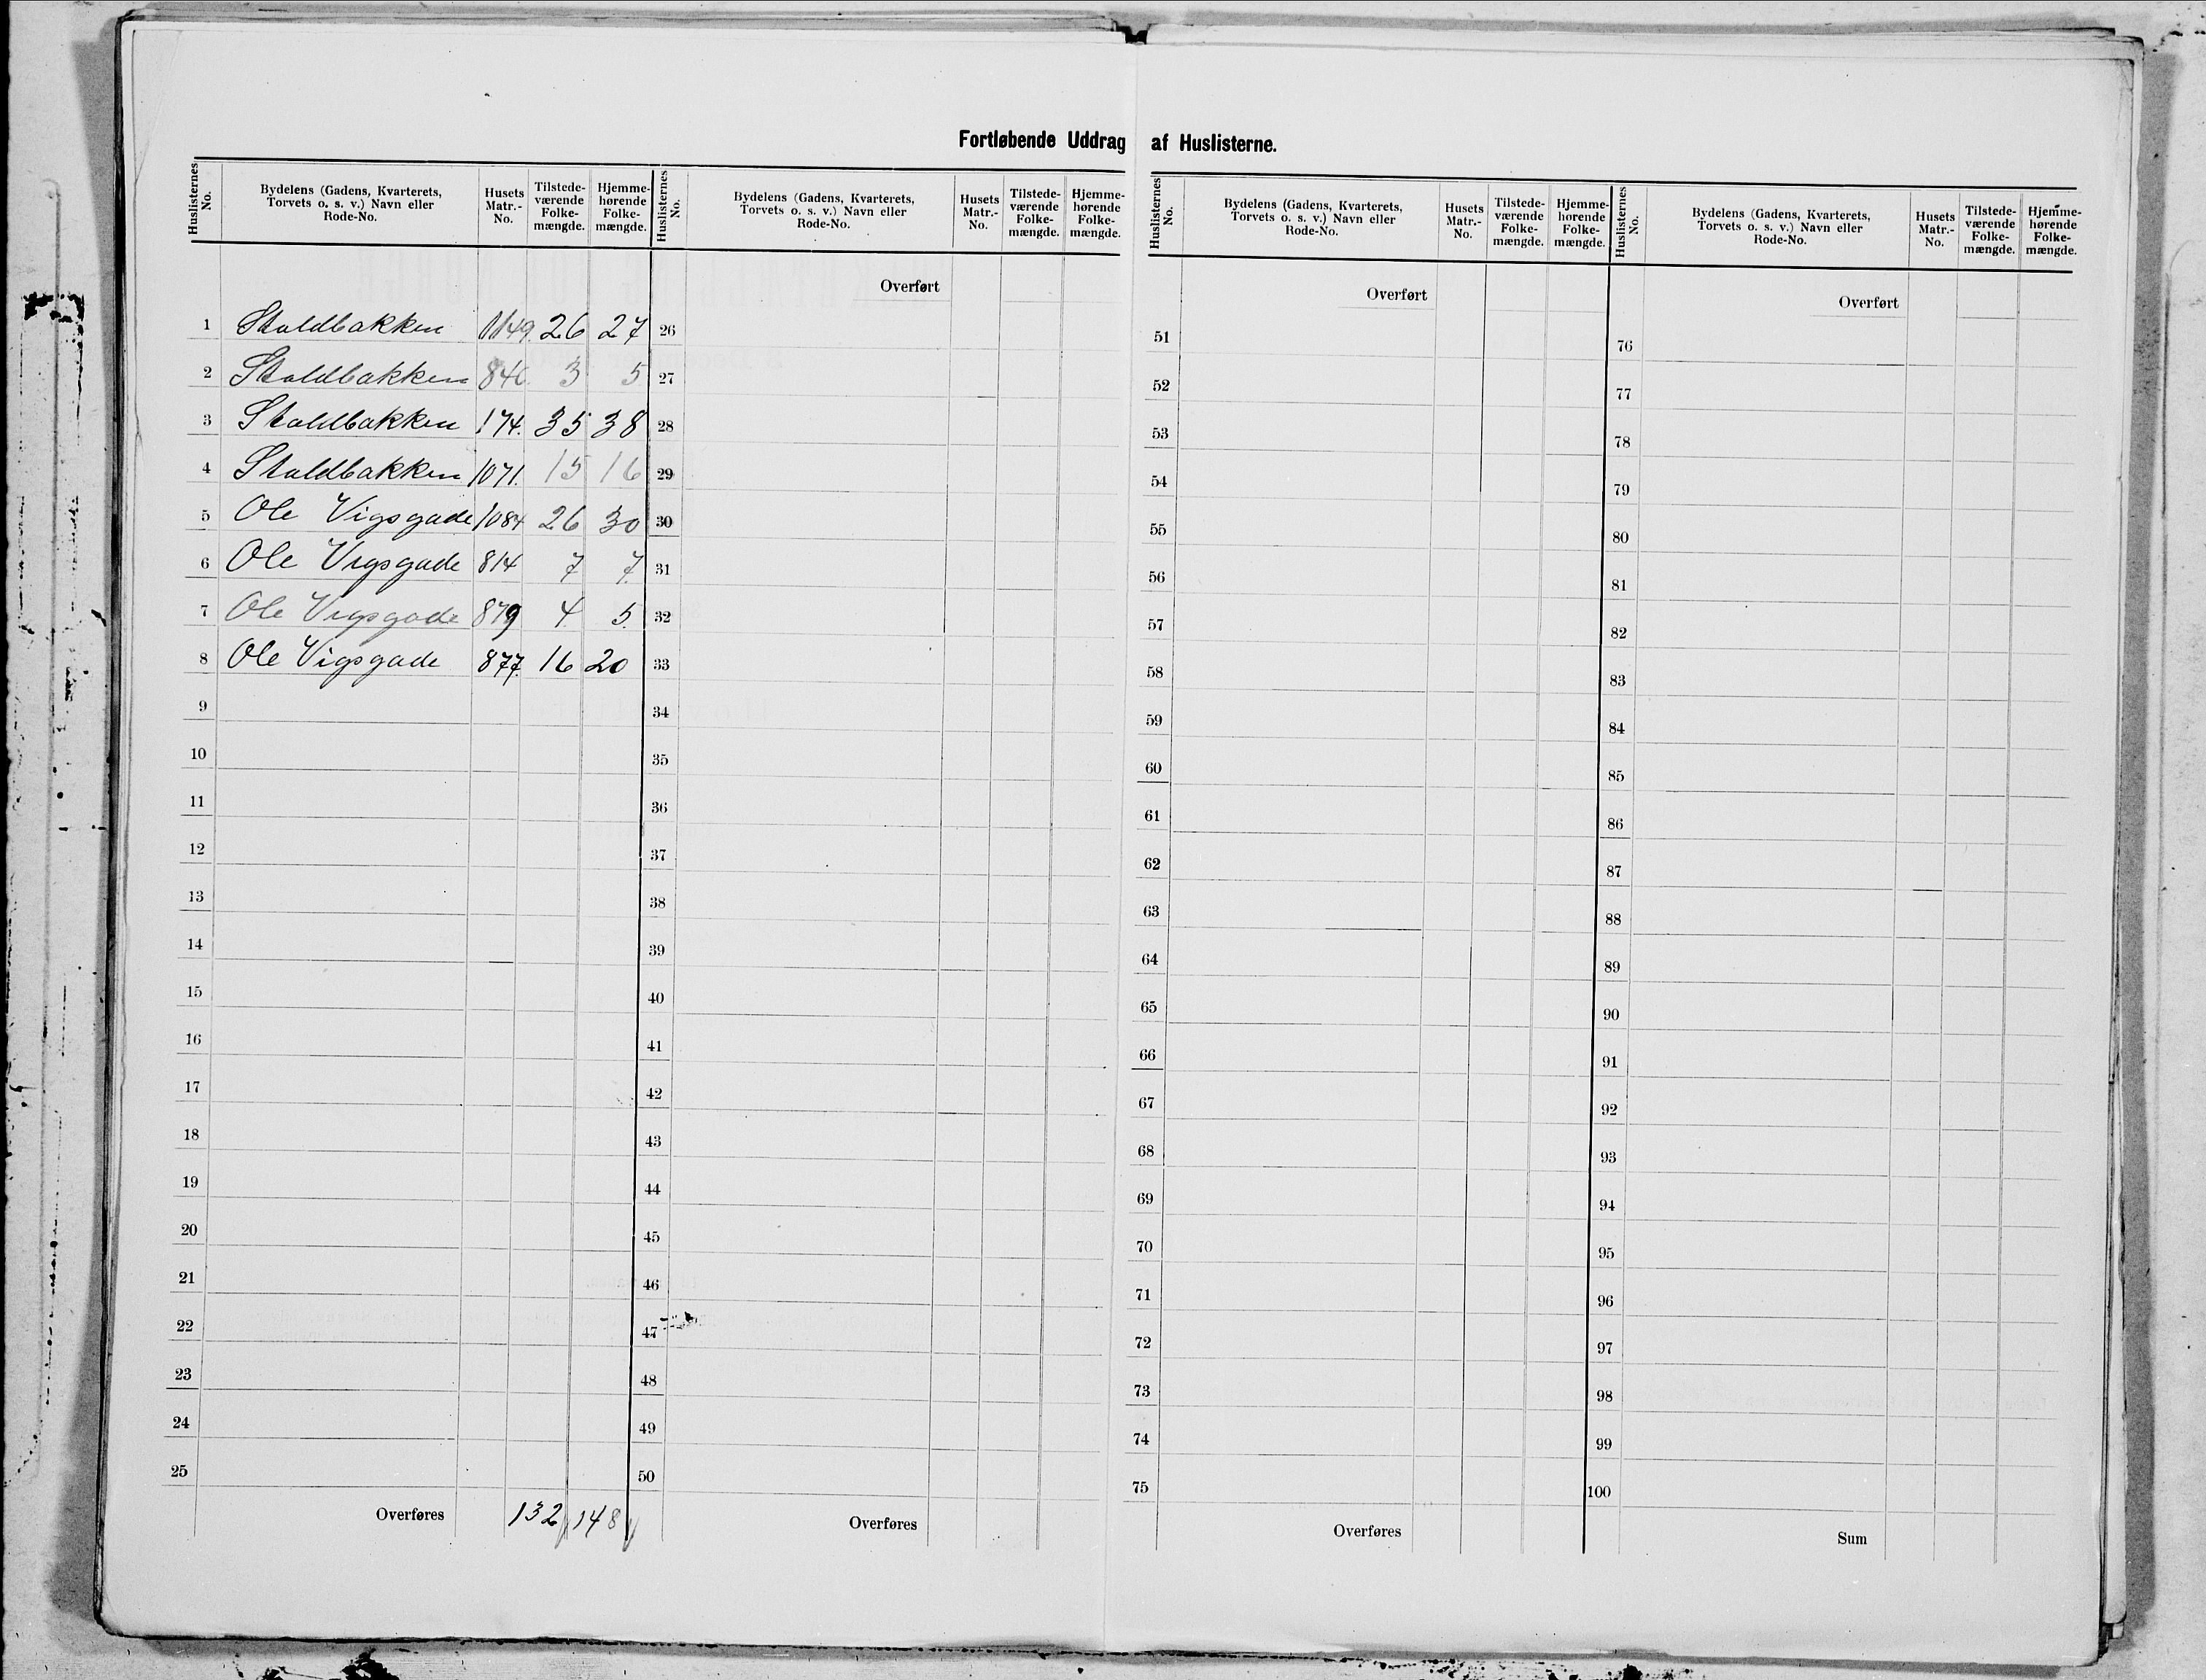 Fortløbende Uddrag af Huslisterne.
Huslisternes No. Bydelens (Gadens, Kvarterets, Torvets o. s. v.) Navn eller Rode-No. Husets Matr.-No. Tilstedeværende Folkemængde. Hjemmehørende Folkemængde.
Huslisternes No. Bydelens (Gadens, Kvarterets, Torvets o. s. v.) Navn eller Rode-No. Husets Matr.-No. Tilstedeværende Folkemængde. Hjemmehørende Folkemængde.
Huslisternes No. Bydelens (Gadens, Kvarterets, Torvets o. s. v.) Navn eller Rode-No. Husets Matr.-No. Tilstedeværende Folkemængde. Hjemmehørende Folkemængde.
Huslisternes No. Bydelens (Gadens, Kvarterets, Torvets o. s. v.) Navn eller Rode-No. Husets Matr.-No. Tilstedeværende Folkemængde. Hjemmehørende Folkemængde.
1 Stoldbakken 1149. 26 27
2 Stoldbakken 846. 3 5
3 Stoldbakken 174. 35 38
4 Stoldbakken 1071. 15 16
5 Ole Vigsgade 1084 26 30
6 Ole Vigsgade 814 7 7.
7 Ole Vigsgade 879 4 5.
8 Ole Vigsgade 877. 16 20
9
10
11
12
13
14
15
16
17
18
19
20
21
22
23
24
25
Overføres 132 148
Overført
26
27
28
29
30
31
32
33
34
35
36
37
38
39
40
41
42
43
44
45
46
47
48
49
50
Overføres
Overført
51
52
53
54
55
56
57
58
59
60
61
62
63
64
65
66
67
68
69
70
71
72
73
74
75
Overføres
Overført
76
77
78
79
80
81
82
83
84
85
86
87
88
89
90
91
92
93
94
95
96
97
98
99
100
Sum